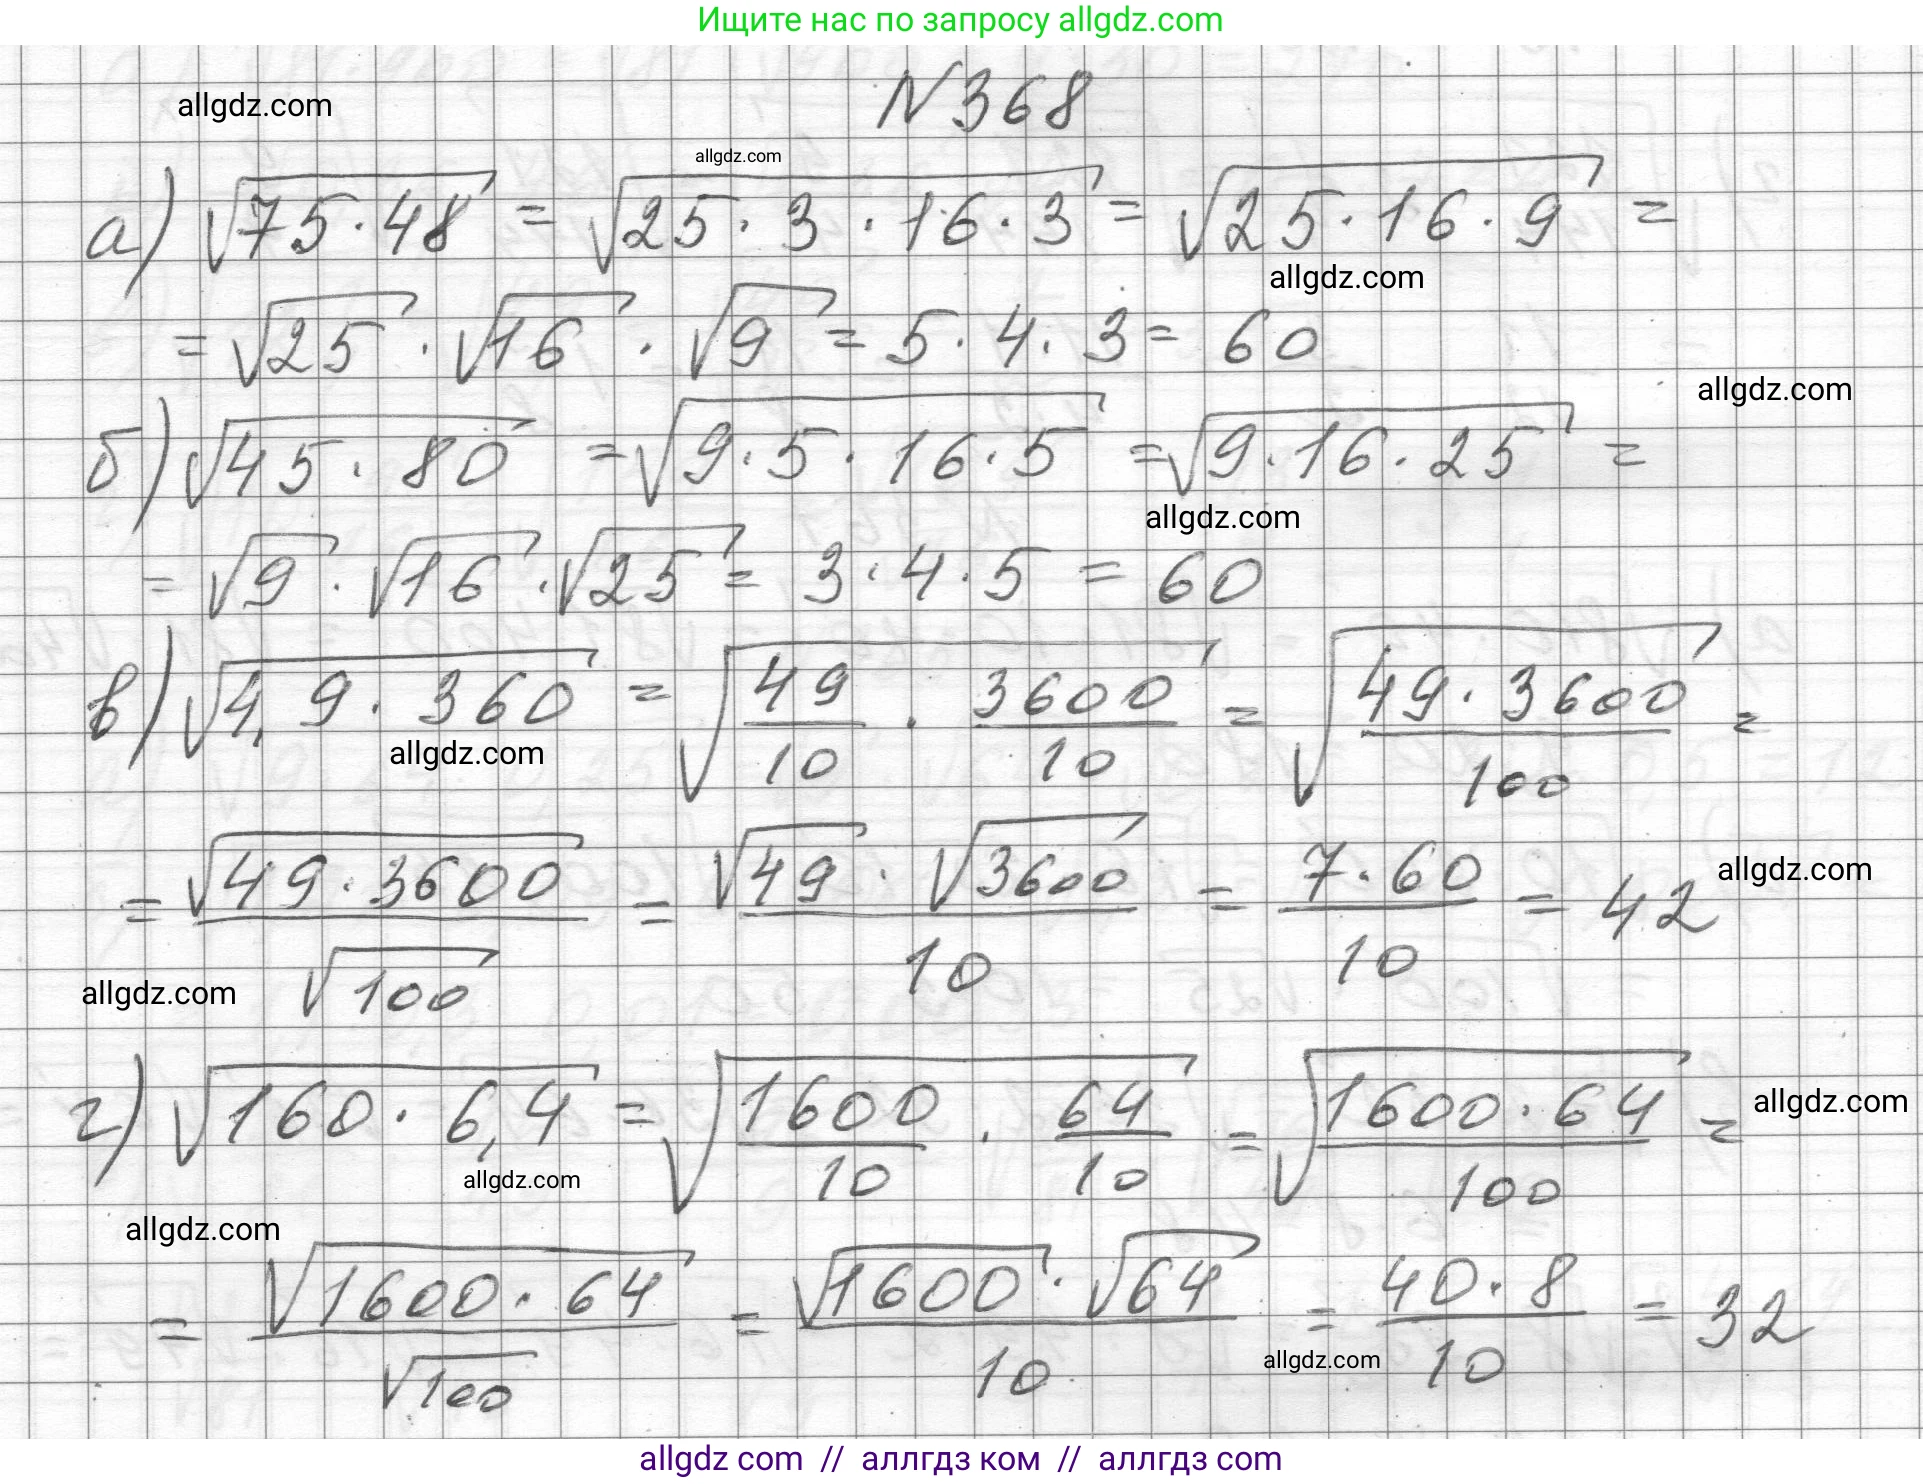 Ищите нас по запросу allgdz.com
N 368
allgdz.com
allgdz.com
а) √(75·48) = √(25·3·16·3) = √(25·16·9) =
allgdz.com
= √25 · √16 · √9 = 5·4·3 = 60
allgdz.com
б) √(45·80) = √(9·5·16·5) = √(9·16·25) =
allgdz.com
= √9 · √16 · √25 = 3·4·5 = 60
в) √(4,9·360) = √(49/10 · 3600/10) = √((49·3600)/100) =
allgdz.com
= √(49·3600)/√100 = (√49 · √3600)/10 = (7·60)/10 = 42
allgdz.com
allgdz.com
г) √(160·6,4) = √(1600/10 · 64/10) = √((1600·64)/100) =
allgdz.com
allgdz.com
allgdz.com
= √(1600·64)/√100 = (√1600 · √64)/10 = (40·8)/10 = 32
allgdz.com
allgdz com // аллгдз ком // аллгдз com